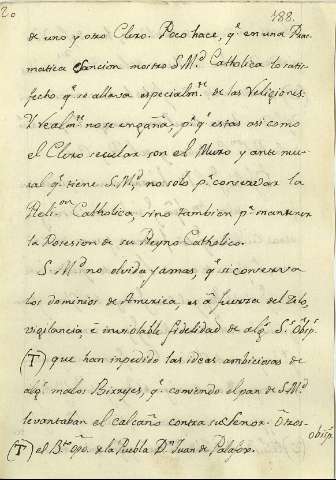 20
188.
de uno y otro Clero. Poco hace, q.e en una Prac
matica Sancion mostro S. M.d Catholica lo satis-
fecho q.e se allava especialm.te de las Religiones.
Y realm.te no se engaña; p.r q.e estas asi como
el Clero secular son el Muro y ante mu-
ral q.e tiene S. M.d no solo p.a conservar la
Reli.on Catholica, sino tambien p.a mantener
la Posesion de su Reyno Catholico.
S. M.d no olvida jamas, q.e si conserva
los dominios de America, es à fuerza del Zelo,
vigilancia, è inviolable fidelidad de alg.s S.res Obisp.s
(T) que han inpedido las ideas ambiciosas de
alg.s malos Birreyes, q.e comiendo el pan de S. M.d
levantaban el calcaño contra su Señor. Otros
Obisp.s
(T) el B.e Opo. de la Puebla D.n Juan de Palafox.